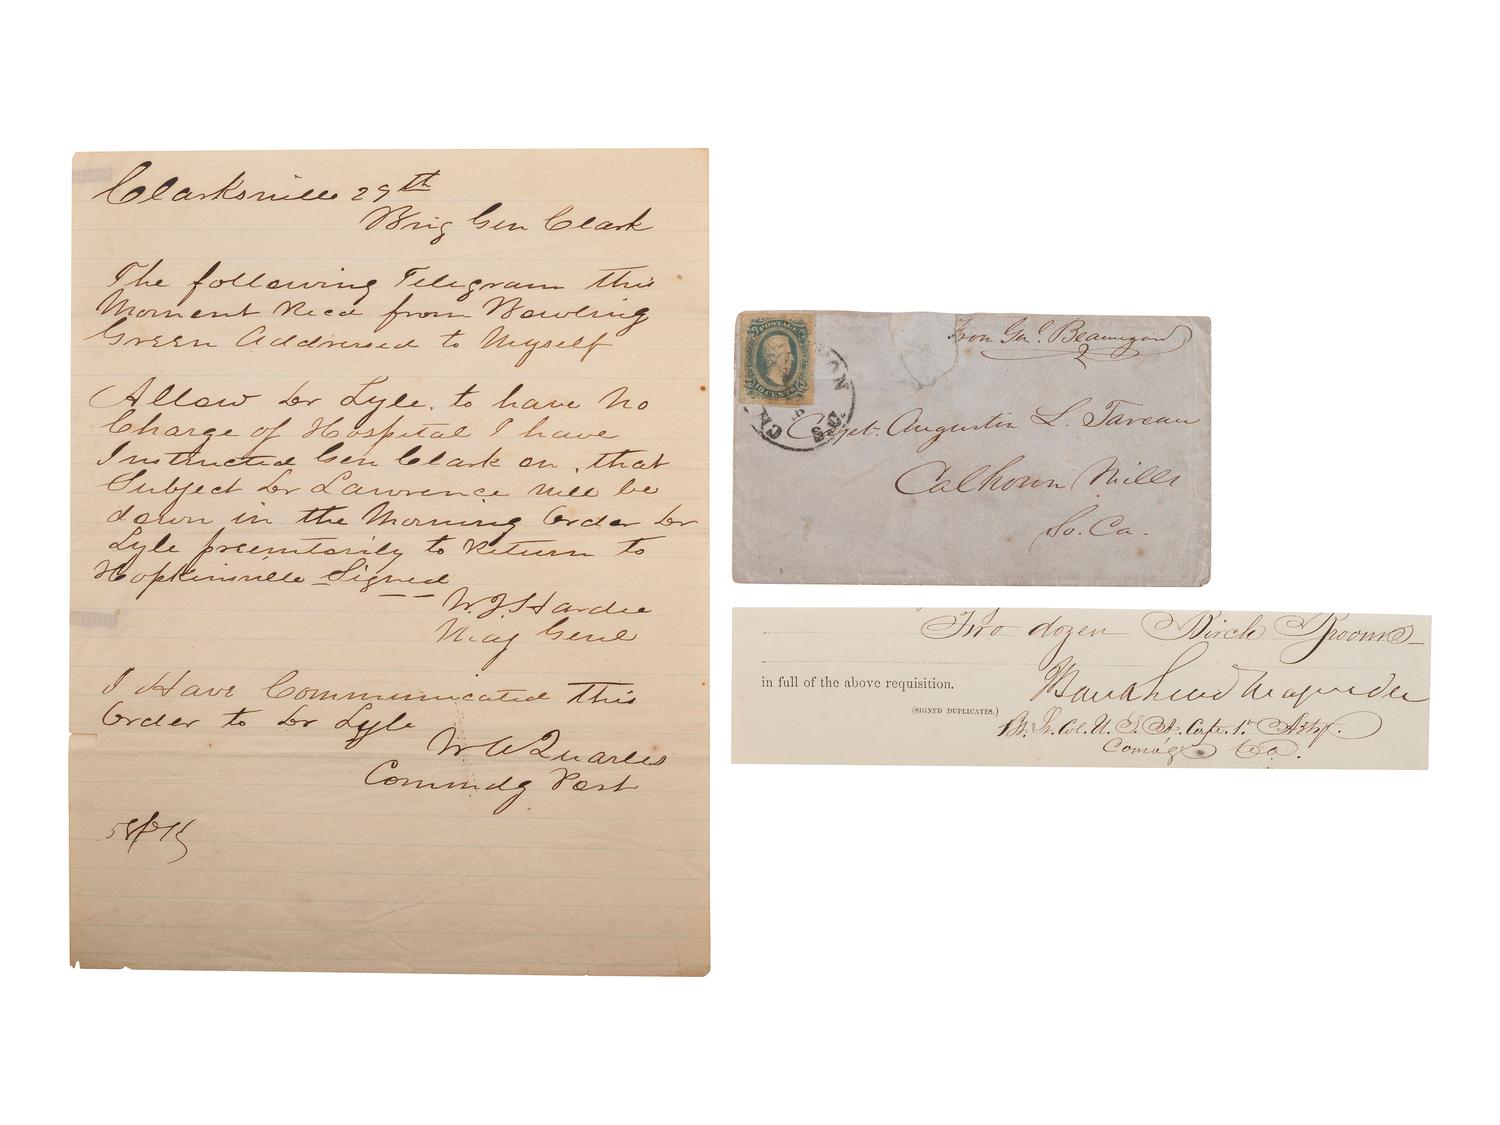 Clarksville 29th
Brig Gen Clark
The following Telegram this
Moment Recd from Bowling
Green Addressed to Myself
Allow Dr Lyle. to have No
Charge of Hospital I have
Instructed Gen Clark on, that
Subject Dr Lawrence will be
down in the Morning Order Dr
Lyle preemtorily to Return to
Hopkinsville Signed
W. J. Hardee
Maj Genl
I Have Communicated this
Order to Dr Lyle
W A Quarles
Commdg Post
POSTAGE
10 CENTS
CH ON
S.C.
From Genl. Beauregard
Capt. Augustin L. Taveau
Calhoun Mills
So. Ca.
Two dozen Birch Brooms
in full of the above requisition.
(SIGNED DUPLICATES.)
Bankhead Magruder
Bt. Lt. Col. U. S. A. Capt. 1st Arty.
Comdg Co.